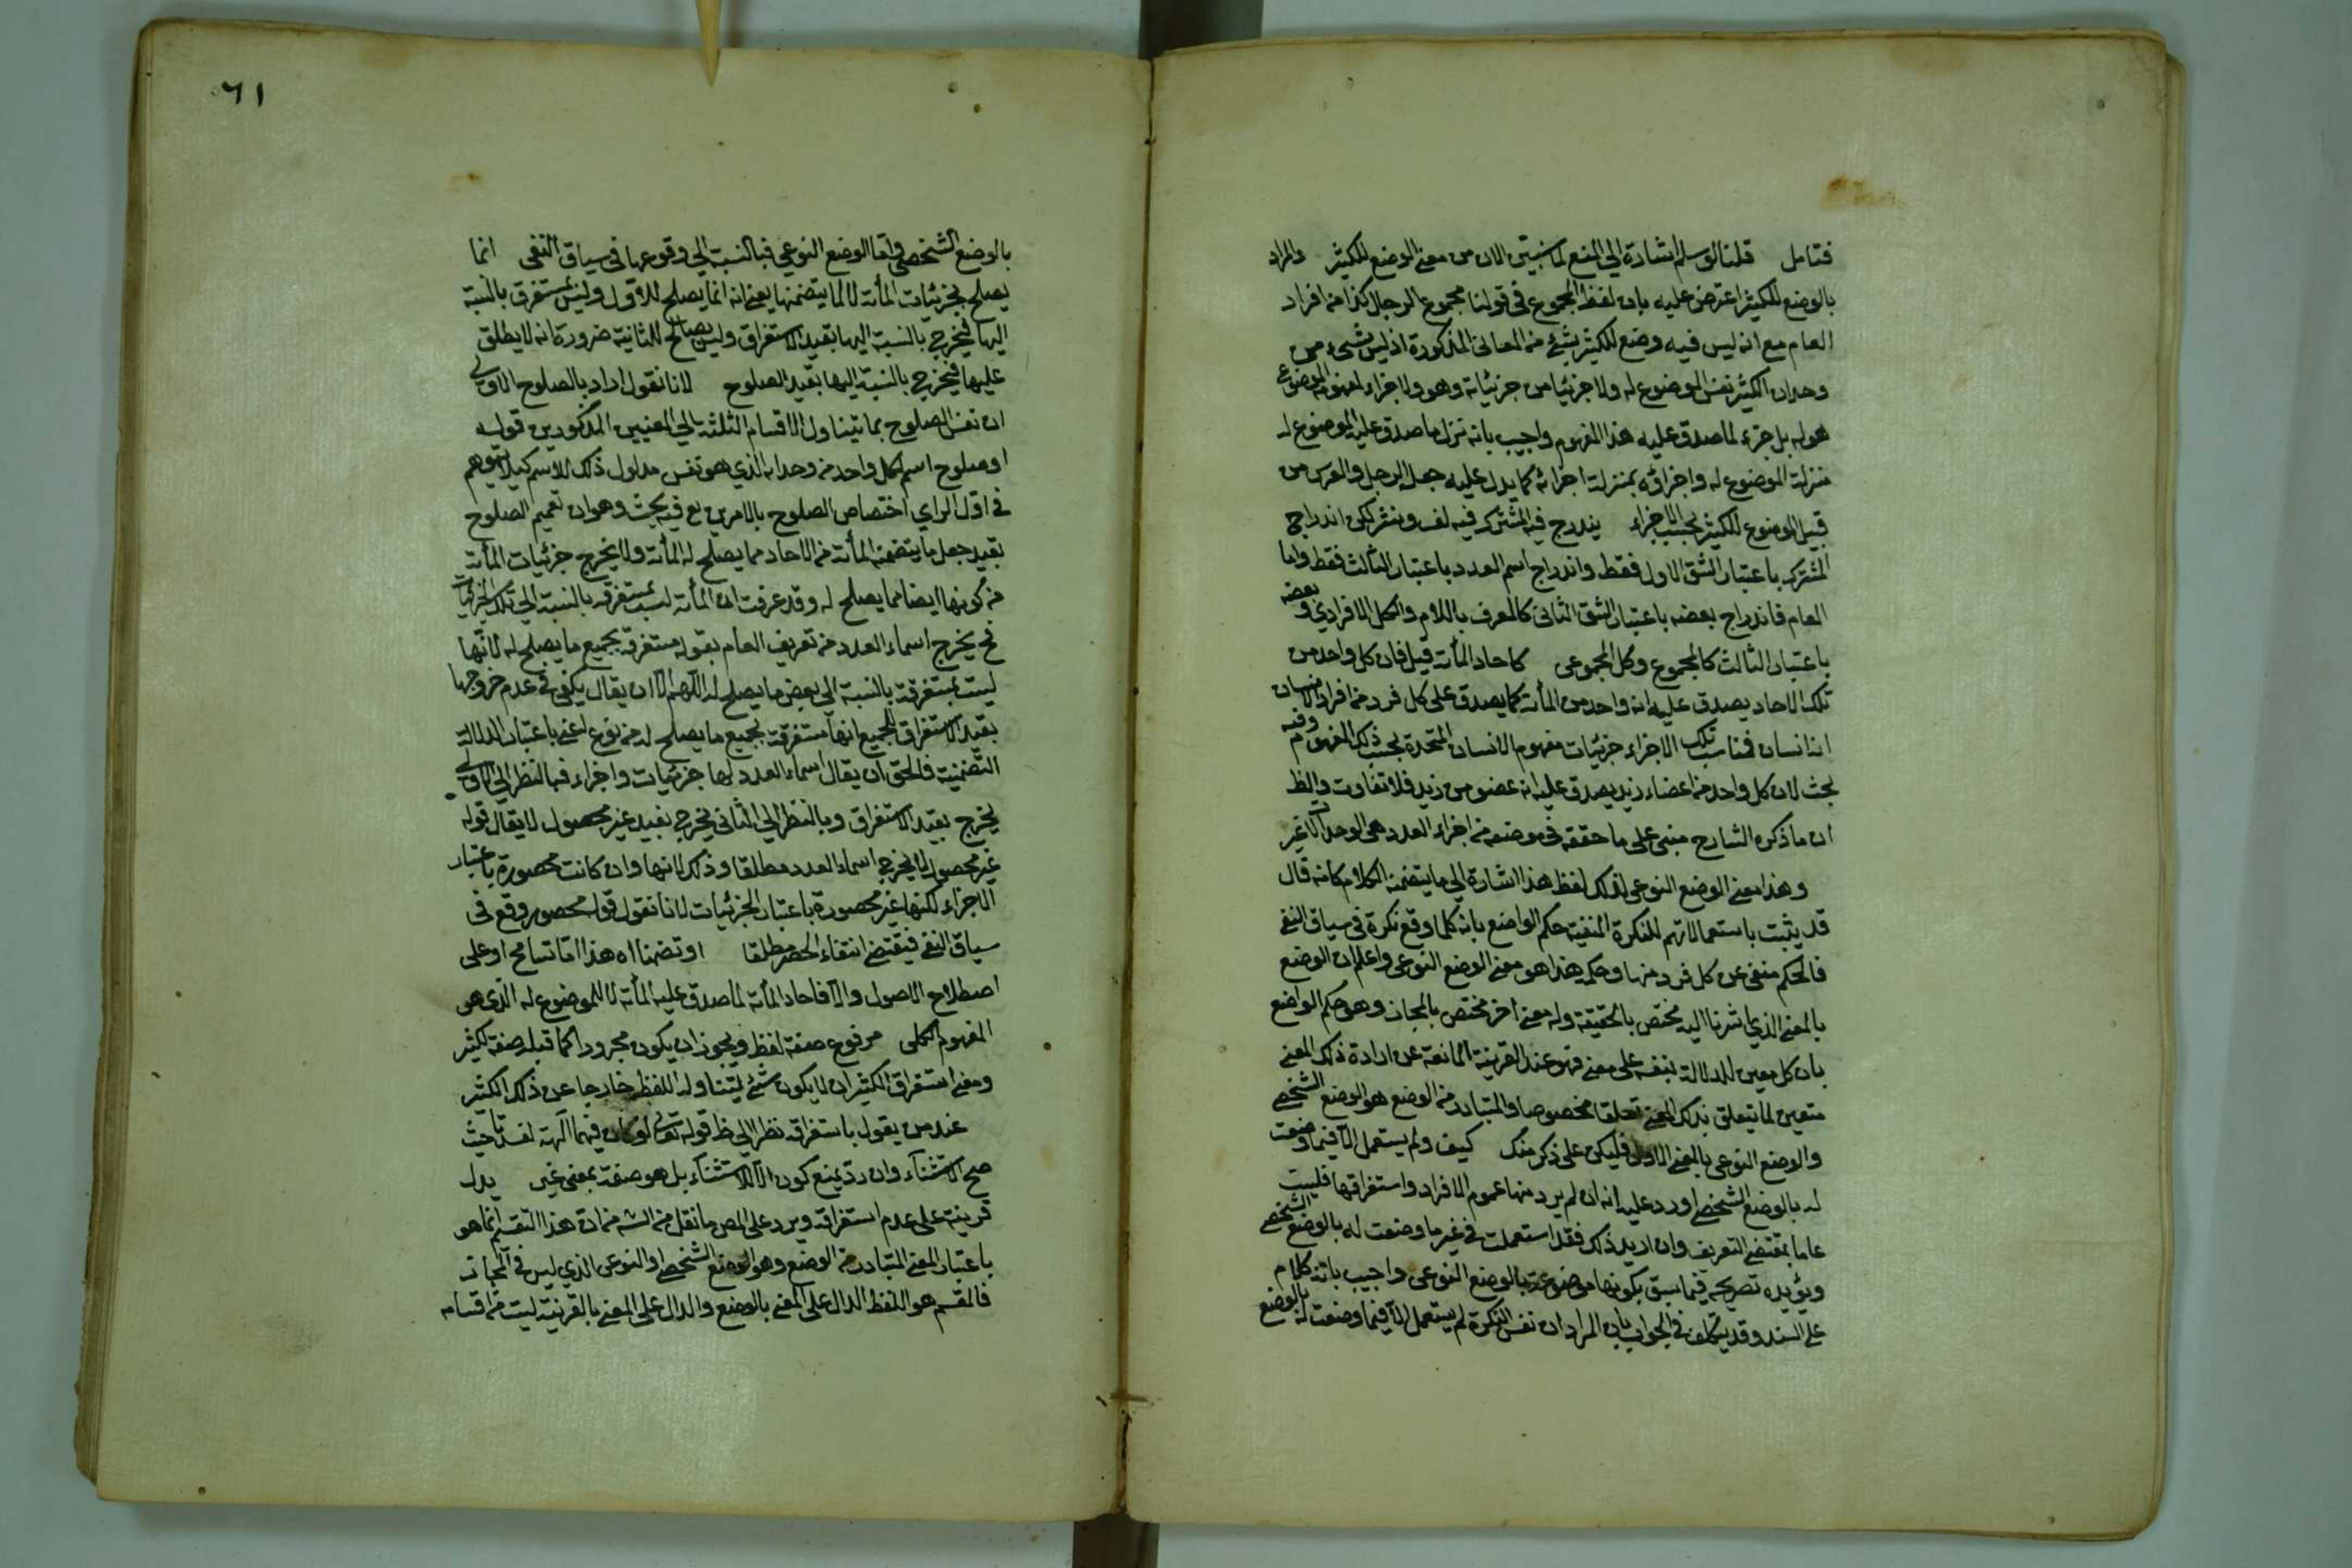 فتامل قلنا لو سلم اشارة الي المنع لما سيتبين الان من معنى الوضع للكثير والمراد
بالوضع للكثير اعترض عليه بان لفظ المجموع في قولنا مجموع الرجال كذا من افراد
العام مع انه ليس فيه وضع للكثير بشئ من المعاني المذكورة اذ ليس شيء من
وحدان الكثير نفس الموضوع له ولا جزئيا من جزئياته وهو ولا اجزاء لمفهومه الموضوع
هو له بل جزء لما صدق عليه هذا المفهوم واجيب بانه نزل ما صدق عليه الموضوع له
منزلة الموضوع له واجزاؤه بمنزلة اجزائه كما يدل عليه جعل الرجل والفرس من
قبيل الوضع للكثير بحسب الاجزاء يندرج فيه المشترك فيه لف ونشر لكن اندراج
المشترك باعتبار الشق الاول فقط واندراج اسم العدد باعتبار الثالث فقط واما
العام فاندراج بعضه باعتبار الشق الثاني كالمعرف باللام والكل الافرادي وبعضه
باعتبار الثالث كالمجموع وكل المجموعي كاحاد المأته قيل فان كل واحد من
تلك الاحاد يصدق عليه انه واحد من المأته كما يصدق على كل فرد من افراد الانسان
انه انسان فناسب تلك الاجزاء جزئيات مفهوم الانسان المتحدة بحسب ذلك المفهوم وفيه
بحث لان كل واحد من اعضاء زيد يصدق عليه انه عضو من زيد فلا تفاوت والظ
ان ما ذكره الشارح مبني على ما حققه في موضعه من اجزاء العدد هي الوحدات لا غير
وهذا معنى الوضع النوعي لذلك لفظ هذا اشارة الي ما يتضمنه الكلام كانه قال
قد يثبت باستعمالاتهم للنكرة المنفية حكم الواضع بانه كلما وقع نكرة في سياق النفي
فالحكم منفي عن كل فرد منها وحكمه هذا هو معنى الوضع النوعي واعلم ان الوضع
بالمعنى الذي اشرنا اليه مختص بالحقيقة وله معنى اخر مختص بالمجاز وهو حكم الواضع
بان كل معين للدلالة بنفسه على معنى فهو عند القرينة المانعة عن ارادة ذلك المعنى
متعين لما يتعلق بذلك المعنى تعلقا مخصوصا والمتبادر من الوضع هو الوضع الشخصي
والوضع النوعي بالمعنى الاول فليكن على ذكر منك كيف ولم يستعمل الا فيما وضعت
له بالوضع الشخصي اورد عليه انه ان لم يرد منها عموم الافراد واستغراقها فليست
عاما بمقتضى التعريف وان اريد ذلك فقد استعملت في غير ما وضعت له بالوضع الشخصي
ويؤيده تصريحه فيما سبق بكونها موضوعة بالوضع النوعي واجيب بانه كلام
على السند وقد يتكلف في الجواب بان المراد ان نفس النكرة لم يستعمل الا فيما وضعت له بالوضع
٦١
بالوضع الشخصي واما الوضع النوعي فبالنسبة الي وقوعها في سياق النفي انما
يصلح لجزئيات المأته لا لما يتضمنها يعني انه انما يصلح للاول وليس بمستغرق بالنسبة
اليها فيخرج بالنسبة اليها بقيد الاستغراق وليس يصلح للثانية ضرورة انه لا يطلق
عليها فيخرج بالنسبة اليها بقيد الصلوح لانا نقول اراد بالصلوح الاولى
ان نفس الصلوح بما يتناول الاقسام الثلثة الي المعنيين المذكورين قوله
او صلوح اسم لكل واحد من وحدانه الذي هو نفس مدلول ذلك الاسم كيلا يتوهم
في اول الراي اختصاص الصلوح بالامرين مع فيه بحث وهو ان تعميم الصلوح
بقيد جعل ما يتضمنه المأته من الاحاد مما يصلح له المأته ولا يخرج جزئيات المأته
من كونها ايضا مما يصلح له وقد عرفت ان المأته ليست بمستغرقه بالنسبة الي تلك الجزئيات
فح يخرج اسماء العدد من تعريف العام بقوله مستغرقه لجميع ما يصلح له لانها
ليست بمستغرقة بالنسبة الي بعض ما يصلح له اللهم الا ان يقال يكفي في عدم خروجها
بقيد الاستغراق للجميع انها مستغرقة لجميع ما يصلح له من نوع اعني باعتبار الدلالة
التضمنية فالحق ان يقال اسماء العدد لها جزئيات واجزاء فبالنظر الي الاولى
يخرج بقيد الاستغراق وبالنظر الي الثاني يخرج بقيد غير محصول لا يقال قوله
غير محصور لا يخرج اسماء العدد مطلقا وذلك لانها وان كانت محصورة باعتبار
الاجزاء لكنها غير محصورة باعتبار الجزئيات لانا نقول قوله محصور وقع في
سياق النفي فيقتضي انتفاء الحصر مطلقا او تضمنا اه هذا اما تسامح او على
اصطلاح الاصول والا فاحاد المأته لما صدق عليه المأته لا للموضوع له الذي هو
المفهوم الكلي مرفوع صفة لفظ ويجوز ان يكون مجرورا كما قبله صفة لكثير
ومعنى استغراق الكثير ان لا يكون شئ ليتناوله اللفظ خارجا عن ذلك الكثير
عند من يقول باستغراقه نظرا الي ظ قوله تعالى لو كان فيهما الهة لفسدتا حيث
صح الاستثناء وان رد يمنع كون الا للاستثناء بل هو صفة بمعنى غير يدل
قرينة على عدم استغراقه ويرد على المص ما نقل من الشه من ان هذا التقسيم انما هو
باعتبار المعنى المتبادر من الوضع وهو الوضع الشخصي او النوعي الذي ليس في المجاز
فالمقسم هو اللفظ الدال على المعنى بالوضع والدال على المعنى بالقرينة ليست من اقسامه